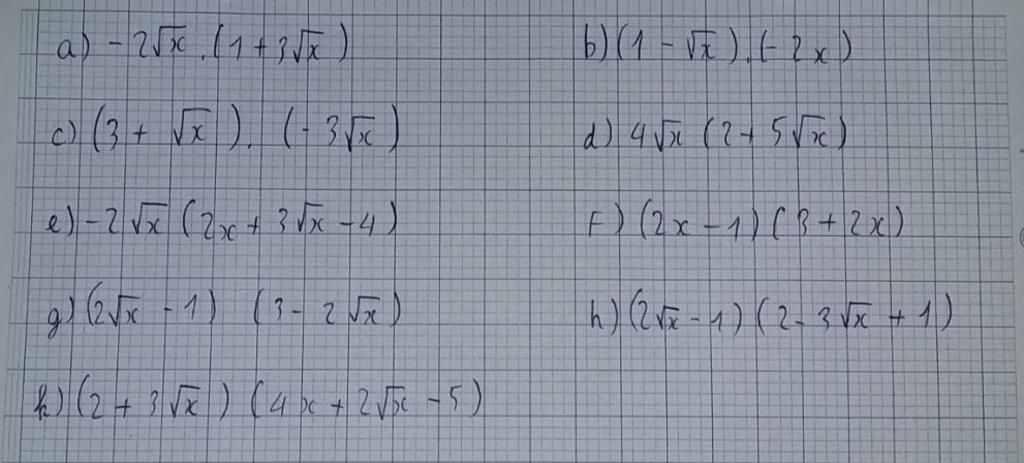 a) -2√x . (1 + 3√x) b) (1 - √x) . (-2x)
c) (3 + √x) . (-3√x) d) 4√x (2 + 5√x)
e) -2√x (2x + 3√x - 4) F) (2x - 1) (3 + 2x)
g) (2√x - 1) (3 - 2√x) h) (2√x - 1) (2 - 3√x + 1)
k) (2 + 3√x) (4x + 2√x - 5)